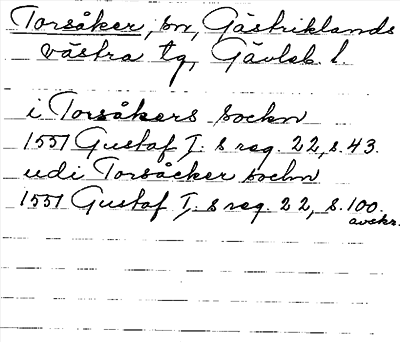 Torsåker, sn, Gästriklands
västra tg, Gävleb. l.
i Torsåkers sockn
1551 Gustaf I:s reg. 22, s. 43.
udi Torsåcker sockn
1551 Gustaf I:s reg. 22, s. 100.
avskr.